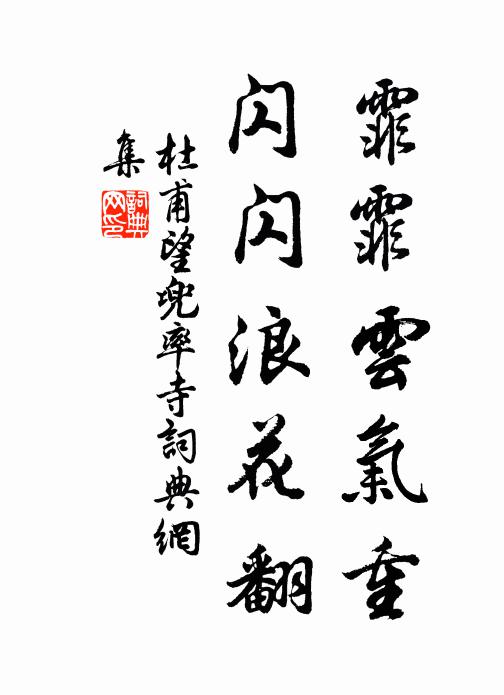 霏霏雲氣重
閃閃浪花翻
杜甫望兜率寺詞典網
集
詞典網印